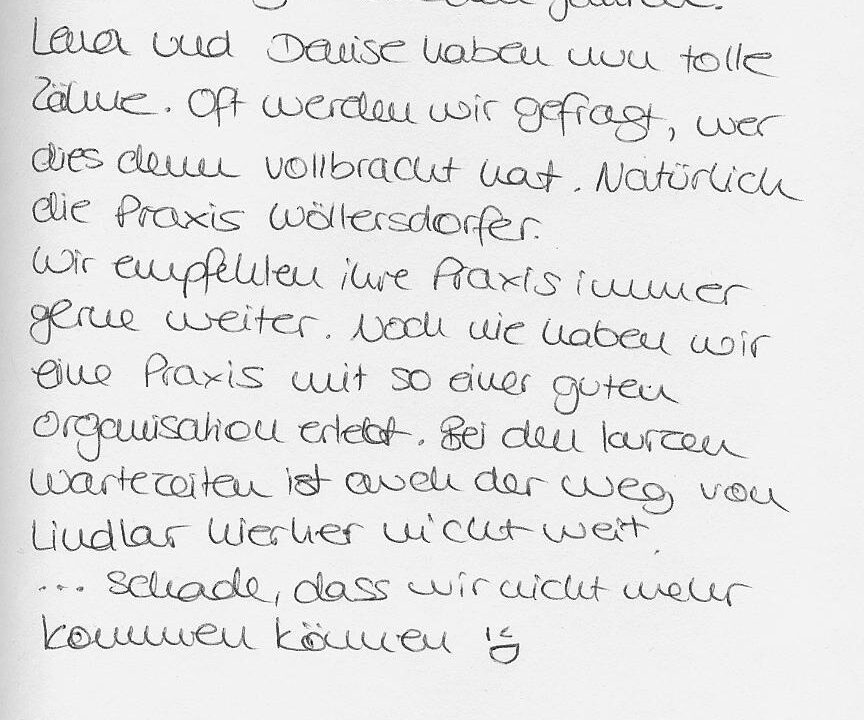 Lena und Denise haben nun tolle
Zähne. Oft werden wir gefragt, wer
dies denn vollbracht hat. Natürlich
die Praxis Wöllersdorfer.
Wir empfehlen ihre Praxis immer
gerne weiter. Noch nie haben wir
eine Praxis mit so einer guten
Organisation erlebt. Bei den kurzen
Wartezeiten ist auch der Weg von
Lindlar hierher nicht weit.
... schade, dass wir nicht mehr
kommen können